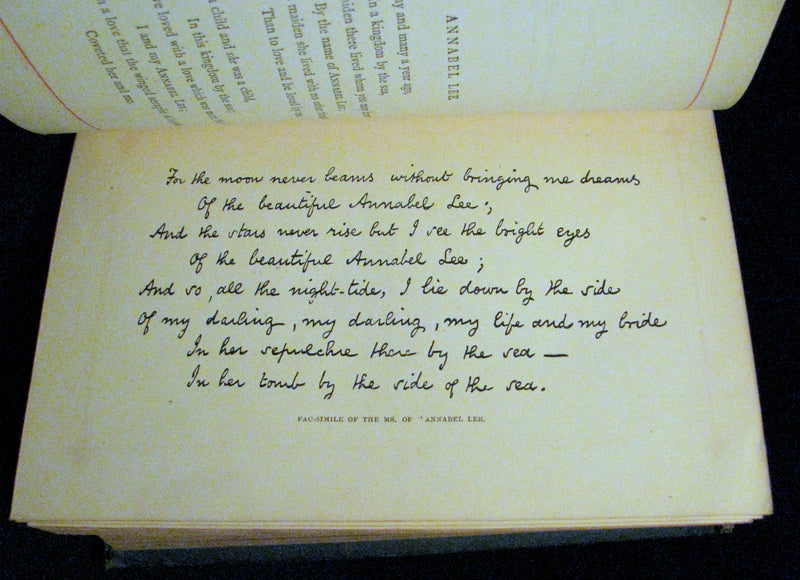 ANNABEL LEE
and many a year ago,
a kingdom by the sea,
there lived whom you
By the name of ANNABEL LEE;
maiden she lived with no other
Than to love and be loved
a child and she was a child,
In this kingdom by the sea;
loved with a love which
I and my ANNABEL LEE;
a love that the winged
Coveted her and me.
For the moon never beams without bringing me dreams
Of the beautiful Annabel Lee;,
And the stars never rise but I see the bright eyes
Of the beautiful Annabel Lee;
And so, all the night-tide, I lie down by the side
Of my darling, my darling, my life and my bride
In her sepulchre there by the sea —
In her tomb by the side of the sea.
FAC-SIMILE OF THE MS. OF "ANNABEL LEE.